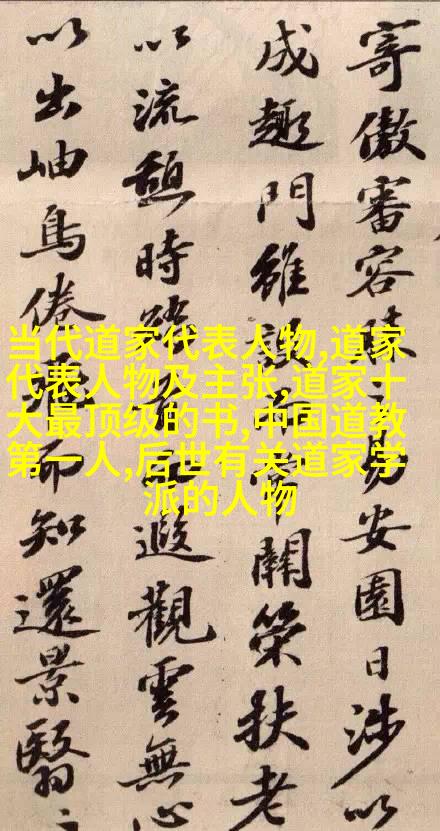 寄傲審容膝易安園日涉以
成趣門雖設而常關策扶老
以流憩時矯首而遐觀雲無心
以出岫鳥倦飛而知還景翳〻
当代道家代表人物,道家
代表人物及主张,道家十
大最顶级的书,中国道教
第一人,后世有关道家学
派的人物